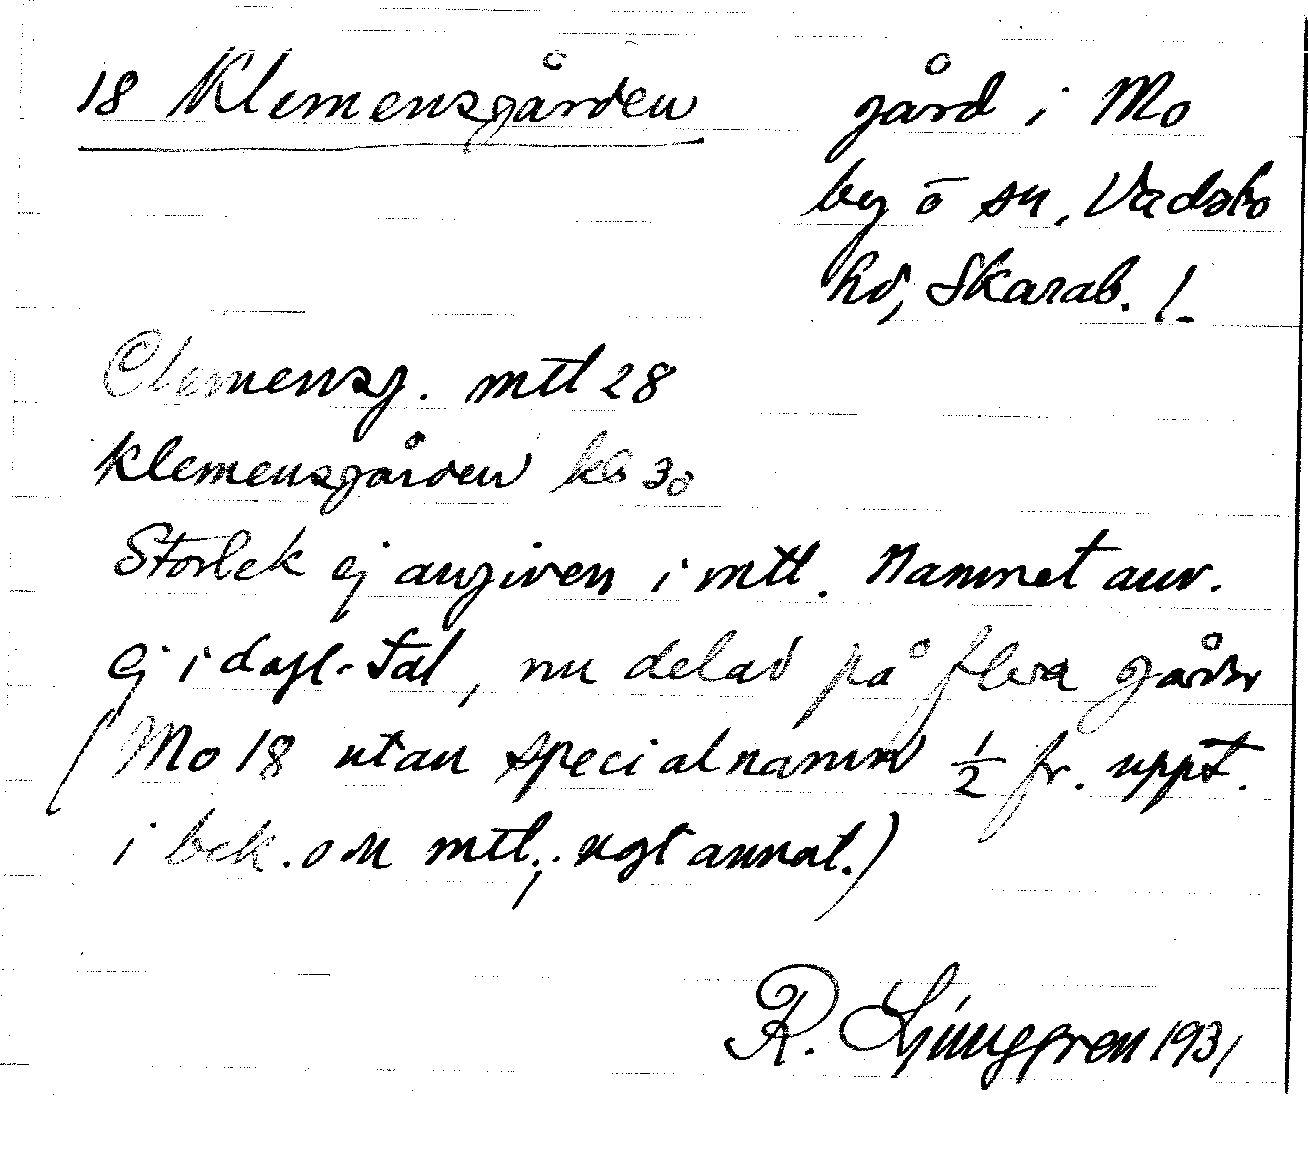 18 Klemensgården
gård i Mo
by o sn, Vadsbo
hd, Skarab. l.
Clemensg. mtl 28
Klemensgården kb 30
Storlek ej angiven i mtl. Namnet anv.
ej i dagl. tal, nu delad på flera gårdar
(Mo 18 utan specialnamn ½ fr. uppt.
i bek. o mtl.; ngt annat.)
R. Ljunggren 1931